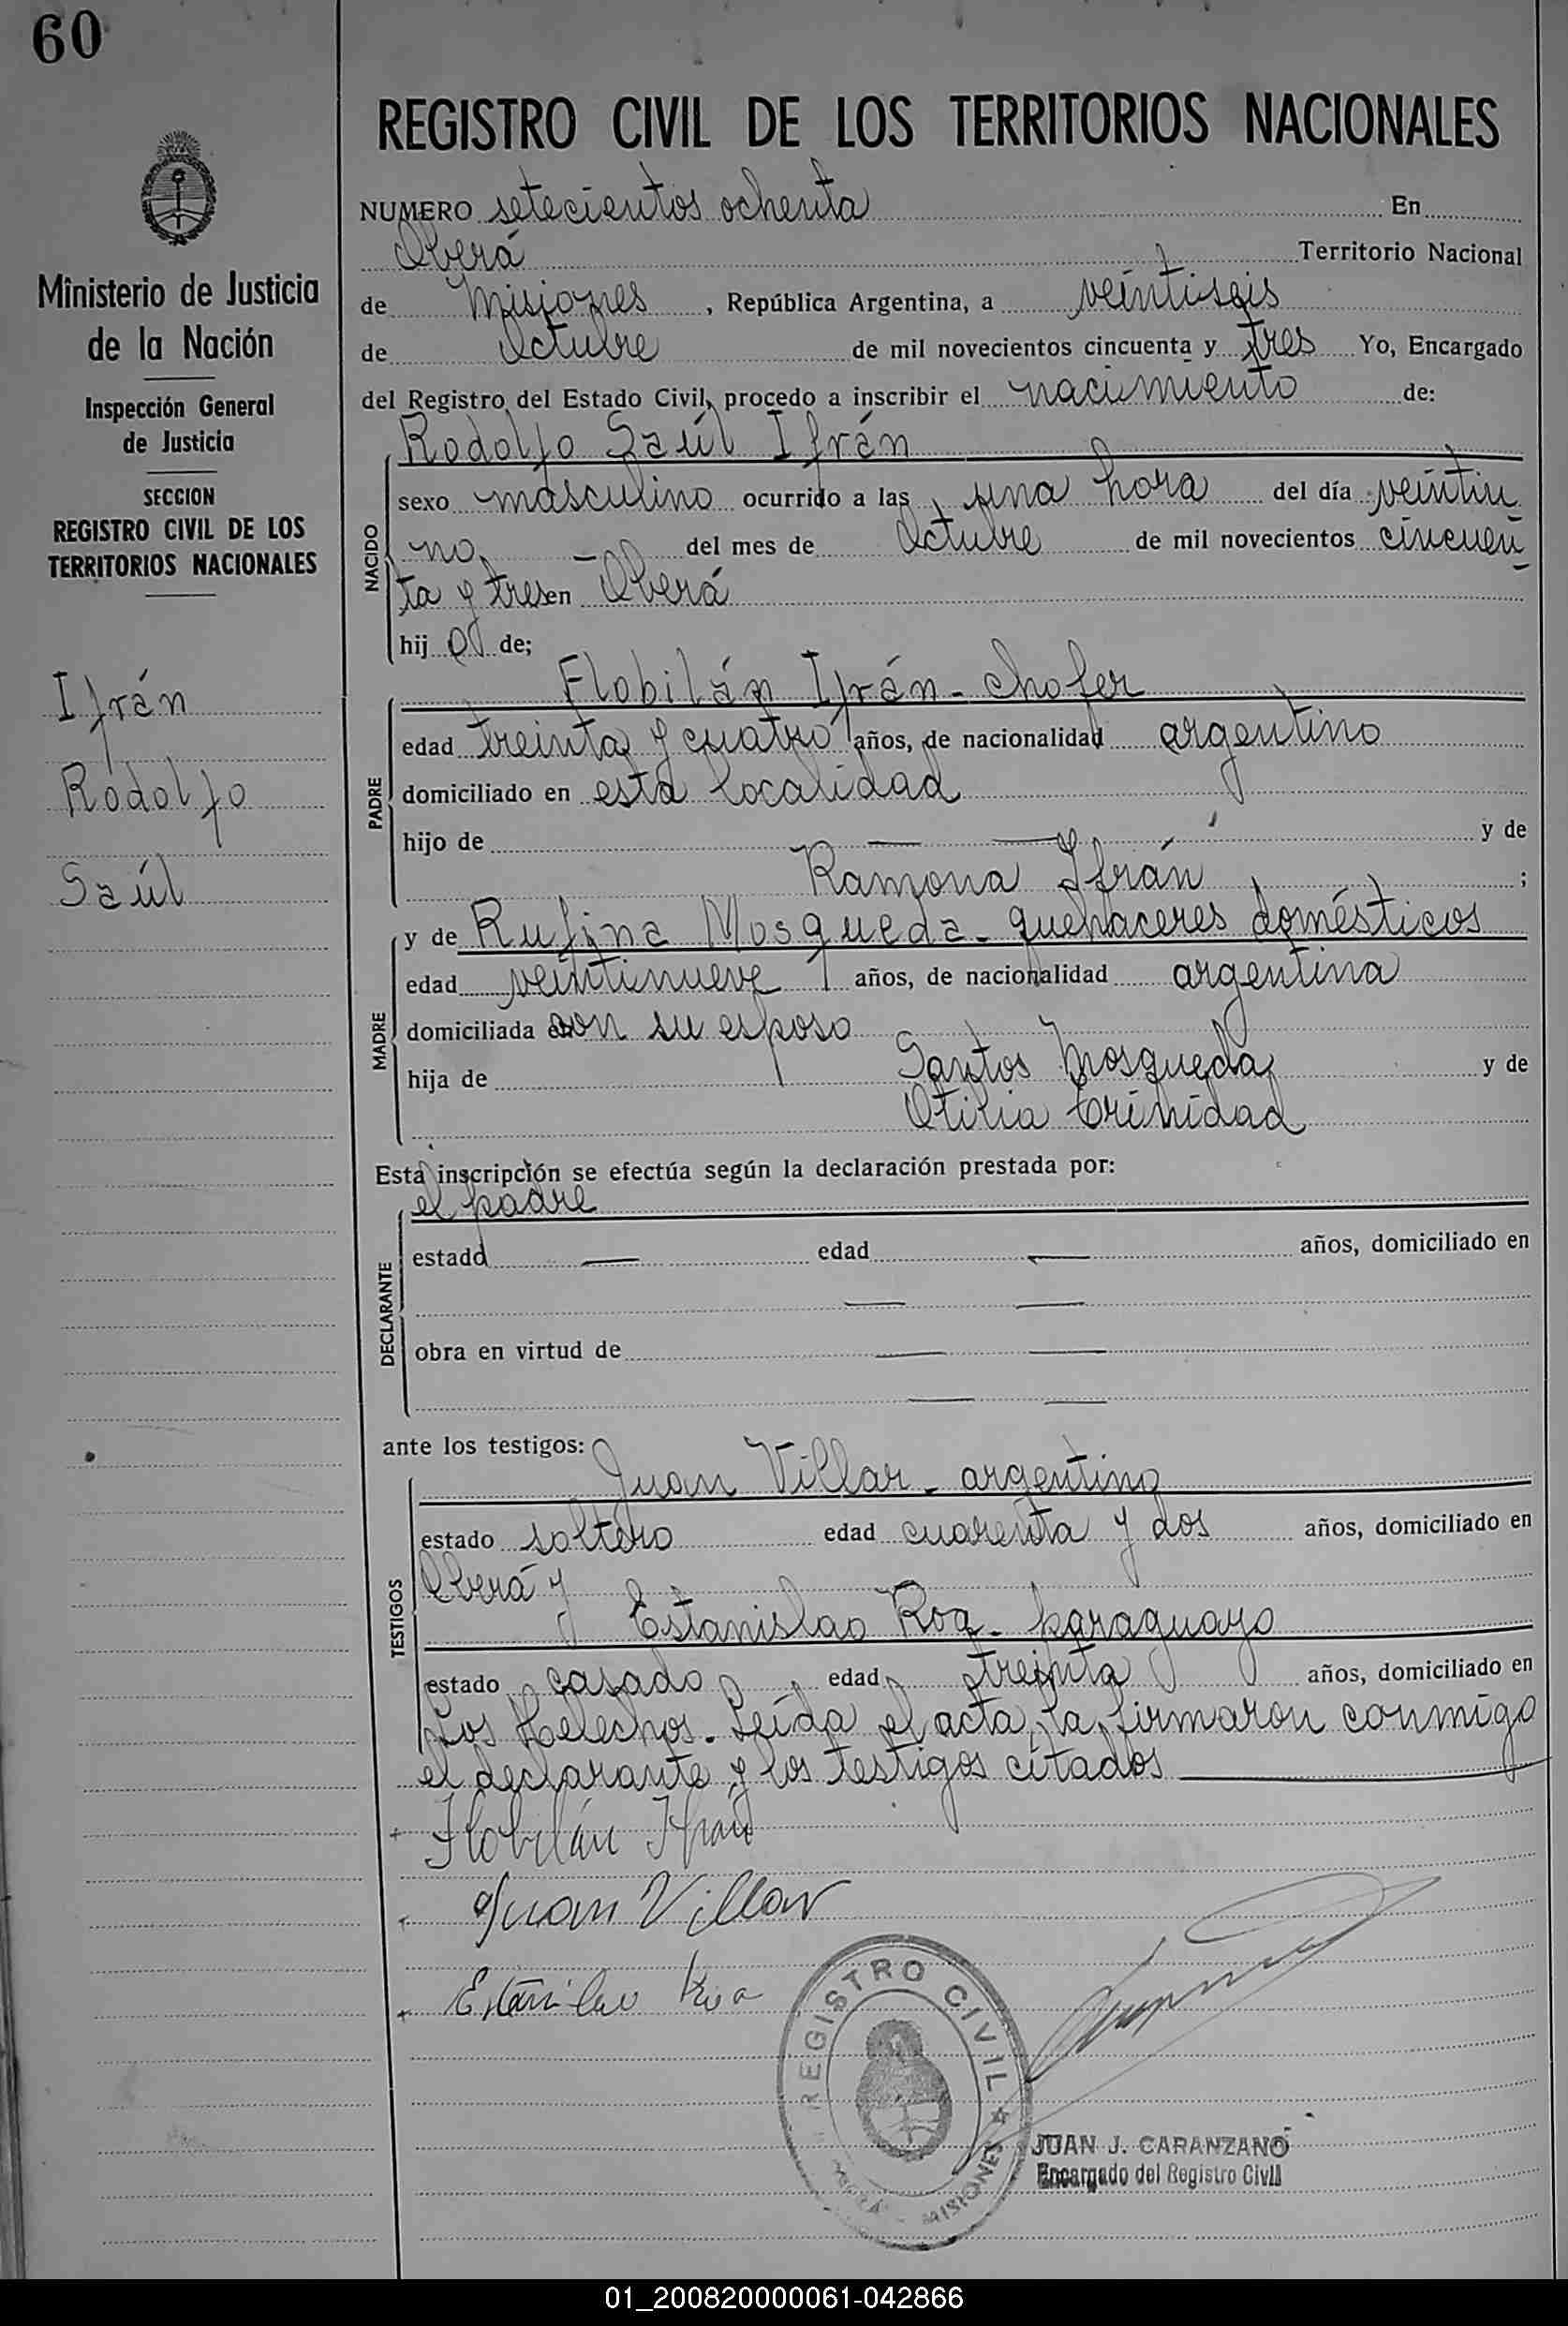 60
REGISTRO CIVIL DE LOS TERRITORIOS NACIONALES
Ministerio de Justicia
de la Nación
Inspección General
de Justicia
SECCION
REGISTRO CIVIL DE LOS
TERRITORIOS NACIONALES
Ifrán
Rodolfo
Saúl
NUMERO setecientos ochenta En
Oberá Territorio Nacional
de Misiones, República Argentina, a veintiseis
de Octubre de mil novecientos cincuenta y tres Yo, Encargado
del Registro del Estado Civil, procedo a inscribir el nacimiento de:
Rodolfo Saúl Ifrán
NACIDO
sexo masculino ocurrido a las una hora del día veintiu
no. — del mes de Octubre de mil novecientos cincuen
ta y tres en Oberá
hijo de;
Flobilán Ifrán - chofer
PADRE
edad treinta y cuatro años, de nacionalidad argentino
domiciliado en esta localidad
hijo de — — y de
Ramona Ifrán ;
y de Rufina Mosqueda - quehaceres domésticos
MADRE
edad veintinueve años, de nacionalidad argentina
domiciliada con su esposo
hija de Santos Mosqueda y de
Otilia Trinidad
Esta inscripción se efectúa según la declaración prestada por:
el padre
DECLARANTE
estado — edad — años, domiciliado en
— —
obra en virtud de — —
— —
ante los testigos:
Juan Villar - argentino
TESTIGOS
estado soltero edad cuarenta y dos años, domiciliado en
Oberá y
Estanislao Roa - paraguayo
estado casado edad treinta años, domiciliado en
Los Helechos. Leída el acta, la firmaron conmigo
el declarante y los testigos citados
Flobilán Ifrán
Juan Villar
Estanislao Roa
REGISTRO CIVIL
OBERÁ - MISIONES
JUAN J. CARANZANO
Encargado del Registro Civil
01_200820000061-042866